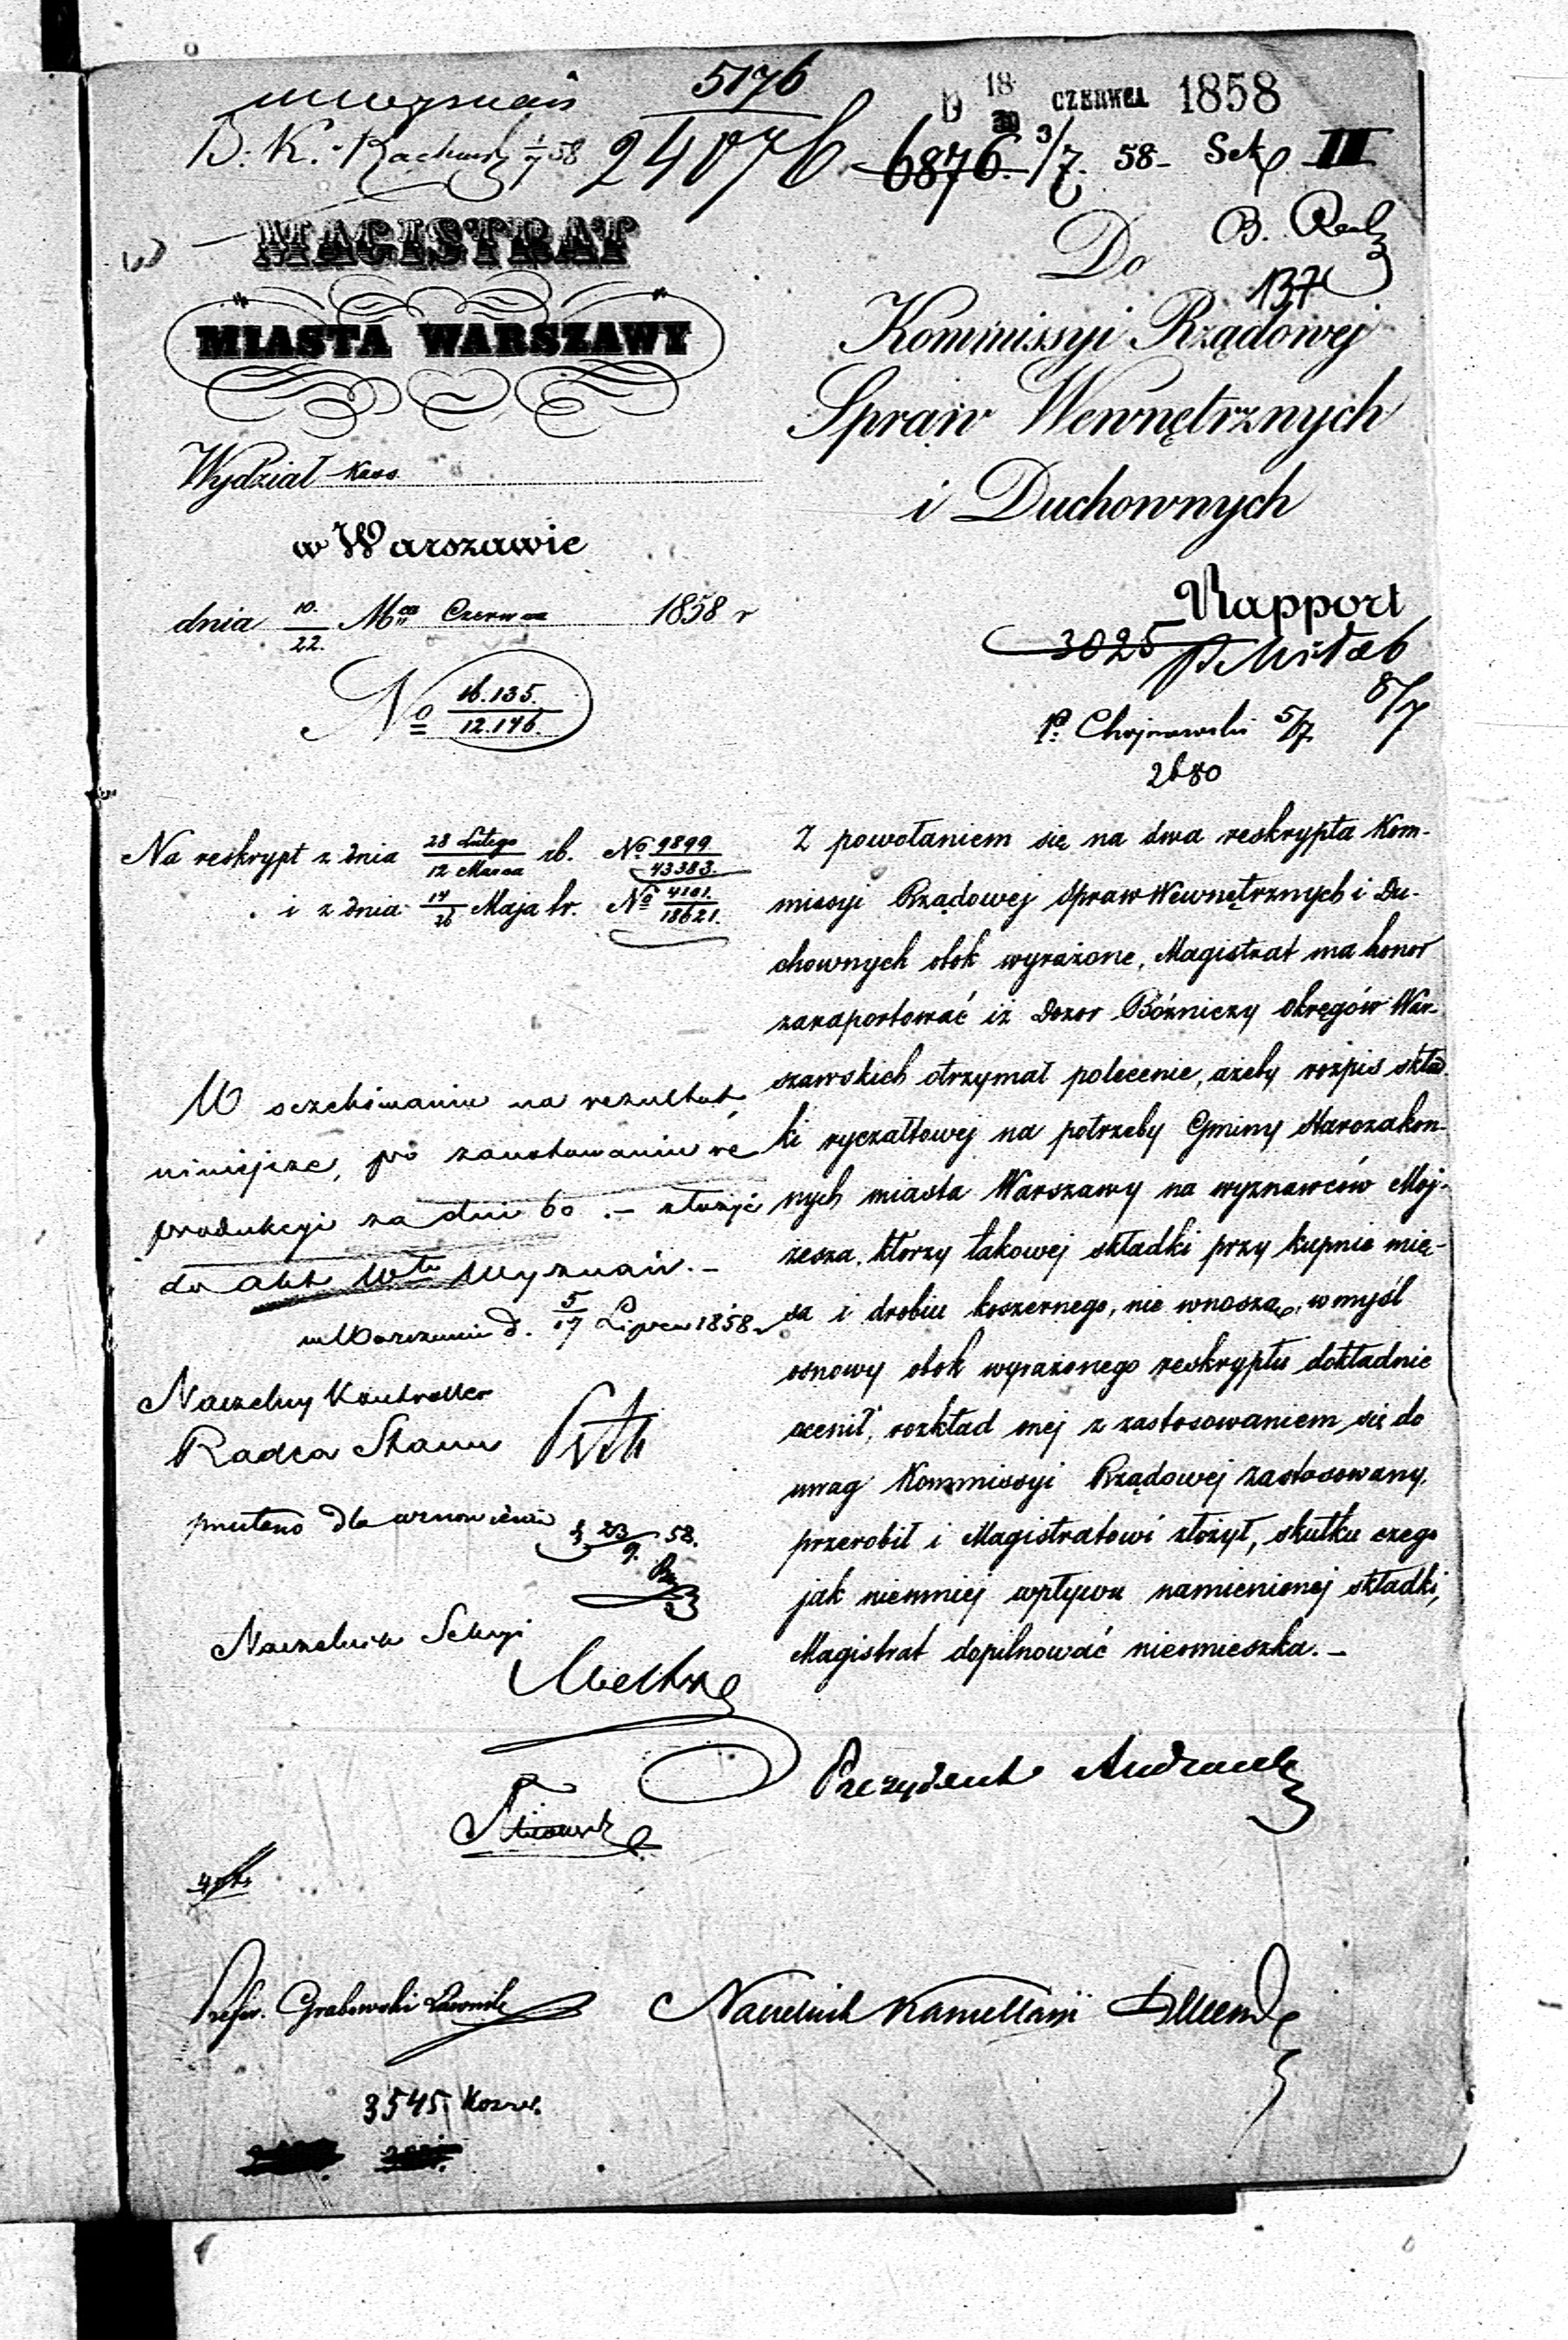 5176
D 18/30 CZERWCA 1858
B. K.
24076 6876. 3/7. 58 – Sek III
MAGISTRAT
MIASTA WARSZAWY
Wydział Kass
w Warszawie
dnia 10./22. Mca Czerwca 1858 r
No 16.135./12.146.
Do
137
Kommissyi Rządowej
Spraw Wewnętrznych
i Duchownych
Rapport
3025
8/7
P. Chojnowski 5/7
2680
Na reskrypt z dnia 28 Lutego/12 Marca rb. No 9899/43383.
i z dnia 14/26 Maja br. No 4101./18621.
Z powołaniem się na dwa reskrypta Kom-
missyi Rządowej Spraw Wewnętrznych i Du-
chownych obok wyrażone, Magistrat ma honor
zaraportować iż Dozor Bóżniczy Okręgów War-
szawskich otrzymał polecenie, ażeby rozpis skład-
ki ryczałtowej na potrzeby Gminy Starozakon-
nych miasta Warszawy na wyznawców Moj-
żesza, którzy takowej składki przy kupnie mię-
sa i drobiu koszernego, nie wnoszą, w myśl
osnowy obok wyrażonego reskryptu dokładnie
ocenił, rozkład onej z zastosowaniem się do
uwag Kommissyi Rządowej zastosowany,
przerobił i Magistratowi złożył, skutku czego
jak niemniej wpływu namienionej składki,
Magistrat dopilnować nieomieszka. –
W oczekiwaniu na rezultat,
niniejsze, po zanotowaniu re
produkcyi za dni 60 . – złożyć
do akt Włu Wyznań. –
w Warszawie d. 5/17 Lipca 1858.
Naczelny Kontroller
Radca Stanu
23/9. 58.
Naczelnik Sekcyi
Prezydent Andrault
Refer. Grabowski Ławnik
Naczelnik Kancellaryi
3545